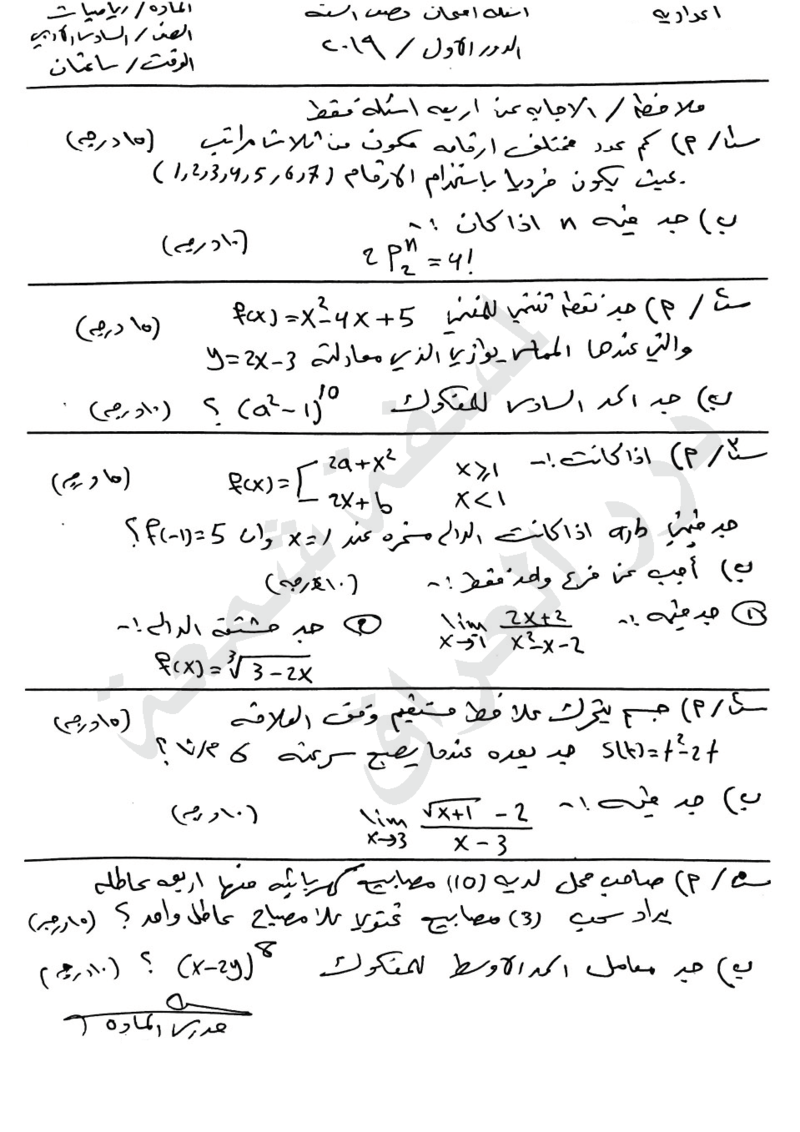 اعدادية
اسئلة امتحان نصف السنة
المادة / رياضيات
الدور الاول / ٢٠١٩
الصف / السادس الادبي
الوقت / ساعتان
ملاحظة / الاجابة عن اربعة اسئلة فقط
س١/ P) كم عدد مختلف ارقامه مكون من ثلاث مراتب (١٥ درجة)
بحيث يكون فرديا باستخدام الارقام (1,2,3,4,5,6,7)
ب) جد قيمة n اذا كان :- (١٠ درجة)
2 P₂ⁿ = 4!
س٢/ P) جد نقطة تنتمي للمنحني f(x)=x²-4x+5 (١٥ درجة)
والتي عندها المماس يوازي الذي معادلته y=2x-3
ب) جد الحد السادس للمفكوك (a²-1)¹⁰ ؟ (١٠ درجة)
س٣/ P) اذا كانت :- f(x)=[ 2a+x² x≥1 (١٥ درجة)
2x+b x<1
جد قيمتي a,b اذا كانت الدالة مستمرة عند x=1 وان f(-1)=5 ؟
ب) أجب عن فرع واحد فقط :- (١٠ درجة)
① جد قيمة :- lim x→-1 (2x+2)/(x²-x-2) ② جد مشتقة الدالة :-
f(x)=∛(3-2x)
س٤/ P) جسم يتحرك على خط مستقيم وفق العلاقة (١٥ درجة)
s(t)=t²-2t جد بعده عندما يصبح سرعته 6 م/ثا ؟
ب) جد قيمة :- lim x→3 (√(x+1) -2)/(x-3) (١٠ درجة)
س٥/ P) صاحب محل لديه (10) مصابيح كهربائية منها اربعة عاطلة
يراد سحب (3) مصابيح تحتوي على مصباح عاطل واحد ؟ (١٥ درجة)
ب) جد معامل الحد الاوسط للمفكوك (x-2y)⁸ ؟ (١٠ درجة)
مدرس المادة